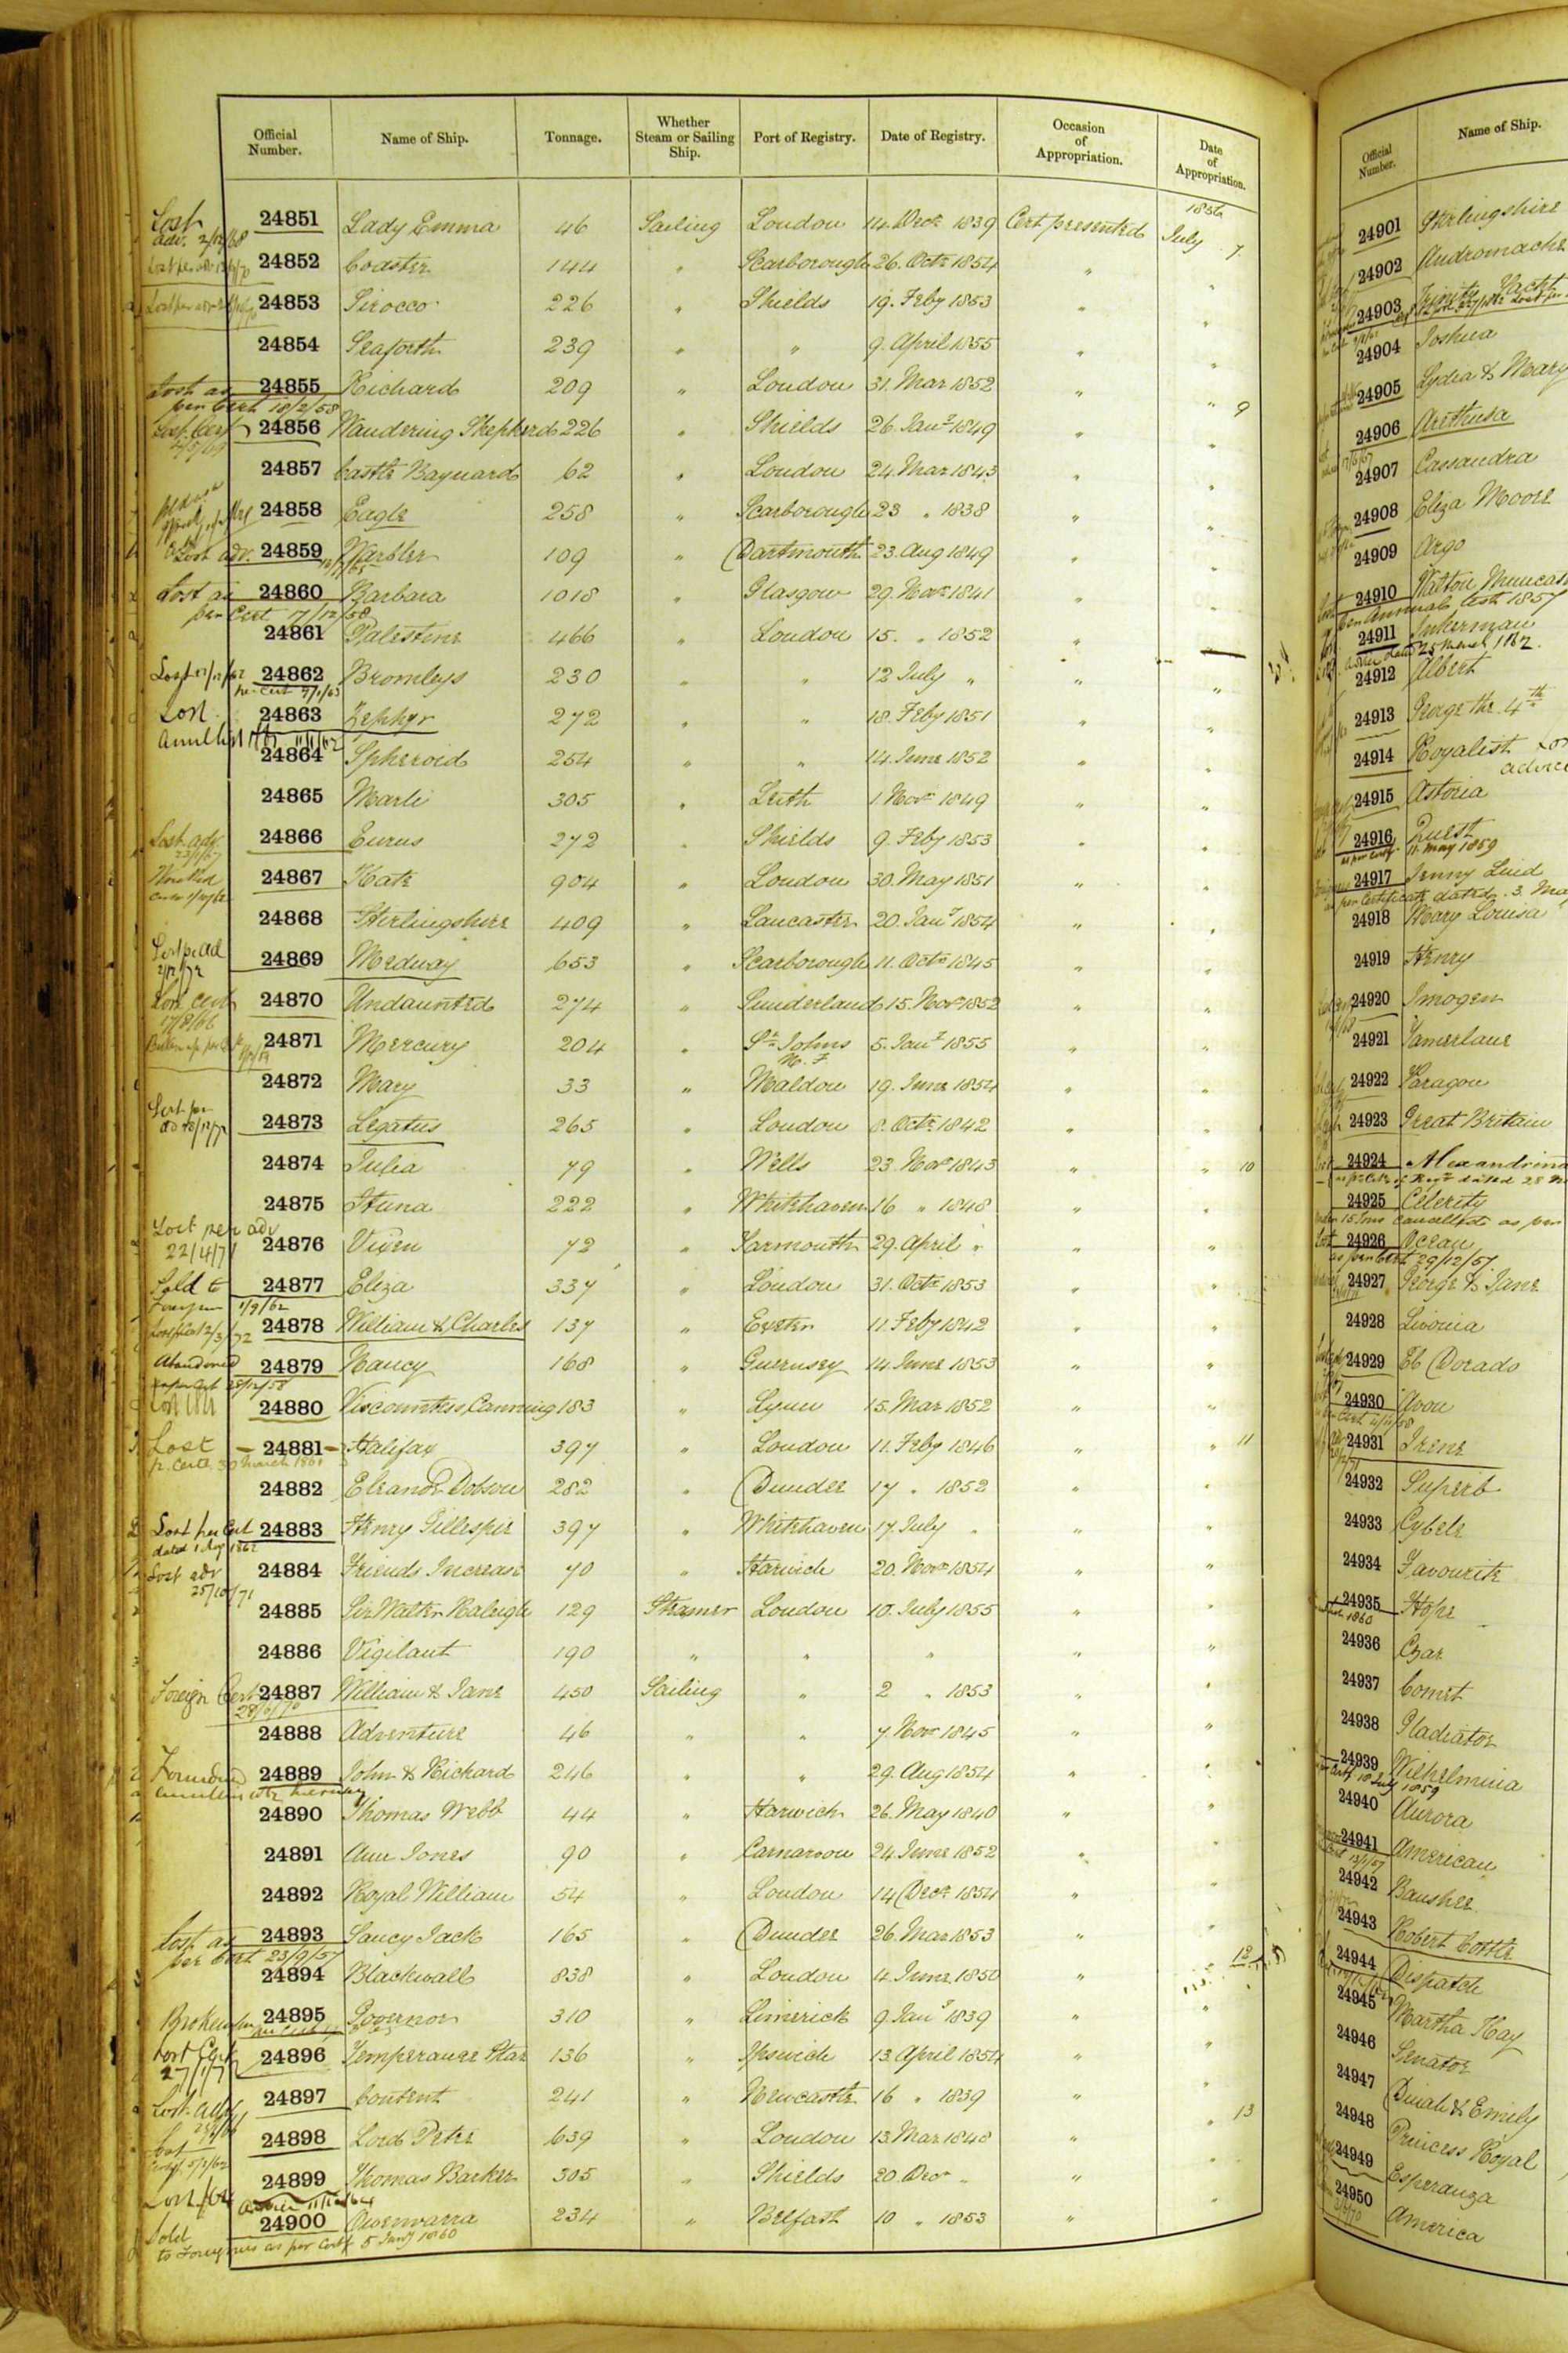 Official Number. Name of Ship. Tonnage. Whether Steam or Sailing Ship. Port of Registry. Date of Registry. Occasion of Appropriation. Date of Appropriation.
1856
Lost 24851 Lady Emma 46 Sailing London 14. Decr 1839 Cert presented July 7
adv. 2/12/68
24852 Coaster 144 " Scarborough 26. Octr 1854 " "
24853 Sirocco 226 " Shields 19. Feby 1853 " "
24854 Seaforth 239 " " 9. April 1855 " "
Lost as 24855 Richard 209 " London 31. Mar 1852 " " 9
per Cert 18/2/58
24856 Wandering Shepherd 226 " Shields 26. Jany 1849 " "
24857 Castle Baynard 62 " London 24. Mar 1843 " "
24858 Eagle 258 " Scarborough 23 " 1838 " "
Lost adv. 24859 Warbler 109 " Dartmouth 23. Aug 1849 " "
Lost as 24860 Barbara 1018 " Glasgow 29. Novr 1841 " "
per Cert 17/12/58
24861 Palestine 466 " London 15. " 1852 "
24862 Bromleys 230 " " 12 July " " "
per Cert 7/1/63
Lost 24863 Zephyr 272 " " 18. Feby 1851 " "
24864 Spheroid 254 " " 14. June 1852 " "
24865 Marli 305 " Leith 1. Novr 1849 " "
Lost adv 24866 Eurus 272 " Shields 9. Feby 1853 " "
24867 Kate 904 " London 30. May 1851 " "
24868 Stirlingshire 409 " Lancaster 20. Jany 1854 " "
24869 Medway 653 " Scarborough 11. Octr 1845 " "
Lost cert 24870 Undaunted 274 " Sunderland 15. Novr 1852 " "
17/8/66
24871 Mercury 204 " St Johns N. F 5. Jany 1855 " "
24872 Mary 33 " Maldon 19. June 1854 " "
Lost per
24873 Legatus 265 " London 8. Octr 1842 " "
24874 Julia 79 " Wells 23. Novr 1843 " " 10
24875 Stuna 222 " Whitehaven 16 " 1848 " "
Lost per adv
22/4/71 24876 Vixen 72 " Yarmouth 29. April " " "
Sold to 24877 Eliza 337 " London 31. Octr 1853 " "
1/9/62
24878 William & Charles 137 " Exeter 11. Feby 1842 " "
Abandoned 24879 Nancy 168 " Guernsey 14. June 1853 " "
28/12/58
24880 Viscountess Canning 183 " Lynn 15. Mar 1852 " "
Lost 24881 Halifax 397 " London 11. Feby 1846 " " 11
24882 Eleanor Dobson 282 " Dundee 17 " 1852 " "
Lost per Cert 24883 Henry Gillespie 397 " Whitehaven 17. July " " "
Lost adv 24884 Friends Increase 70 " Harwich 20. Novr 1854 " "
25/10/71
24885 Sir Walter Raleigh 129 Steamer London 10. July 1855 " "
24886 Vigilant 190 " " " " "
Foreign Cert 24887 William & Jane 450 Sailing " 2 " 1853 " "
24888 Adventure 46 " " 7 Novr 1845 " "
Foundered 24889 John & Richard 246 " " 29. Aug 1854 " "
24890 Thomas Webb 44 " Harwich 26. May 1840 " "
24891 Ann Jones 90 " Carnarvon 24. June 1852 " "
24892 Royal William 54 " London 14 Decr 1854 " "
Lost as 24893 Saucy Jack 165 " Dundee 26. Mar 1853 " "
per Cert 23/9/57
24894 Blackwall 838 " London 4. June 1850 " " 12
24895 Governor 310 " Limerick 9. Jany 1839 " "
24896 Temperance Star 136 " Ipswich 13. April 1854 " "
24897 Content 241 " Newcastle 16 " 1839 " "
24898 Lord Petre 639 " London 13. Mar 1848 " " 13
24899 Thomas Barker 305 " Shields 20. Decr " " "
24900 Owenvarra 234 " Belfast 10 " 1853 " "
Sold to Foreigners as per Certf 5 Jany 1860
Official Number. Name of Ship.
24901 Stirlingshire
24902 Andromache
24903 Trinity Yacht
24904 Joshua
24905 Lydia & Mary
24906 Arethusa
24907 Cassandra
24908 Eliza Moore
24909 Argo
24910
per Annual List 1857
24911 Inkerman
25 March 1862.
24912 Albert
24913 George the 4th
24914 Royalist
24915 Astoria
24916 Quest
11 May 1859
24917 Jenny Lind
as per Certificate dated 3.
24918 Mary Louisa
24919 Henry
24920 Imogen
24921 Tamerlane
24922 Paragon
24923 Great Britain
24924 Alexandrina
24925 Celerity
24926 Ocean
as per Cert 29/12/57
24927 George & Jane
24928 Livonia
24929 El Dorado
24930 Avon
24931 Irene
24932 Superb
24933 Cybele
24934 Favourite
24935 Hope
24936 Czar
24937 Comet
24938 Gladiator
24939 Wilhelmina
18 July 1859
24940 Aurora
24941 American
24942 Banshee
24943 Robert Cottle
24944 Dispatch
24945 Martha Kay
24946 Senator
24947 Dinah & Emily
24948 Princess Royal
24949 Esperanza
24950 America